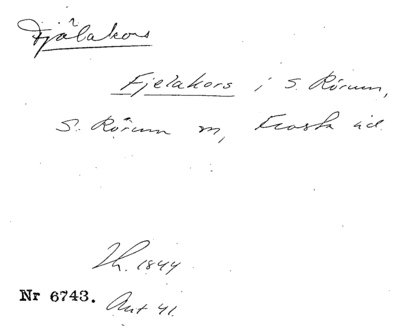 Fjälakors
Fjelakors i S. Rörum,
S. Rörum m, Frosta äd.
Th. 1844
Nr 6743. Ant 41.